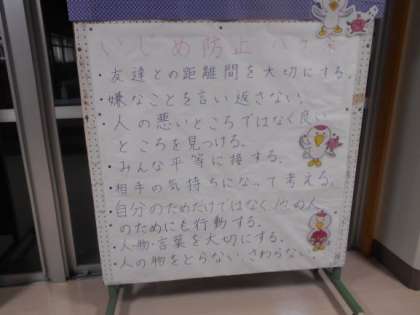 いじめ防止
・友達との距離間を大切にする.
・嫌なことを言い返さない.
・人の悪いところではなく良い
ところを見つける.
・みんな平等に接する.
・相手の気持ちになって考える.
・自分のためだけではなく、他の人
のためにも行動する.
・人物・言葉を大切にする.
・人の物をとらない、さわらない